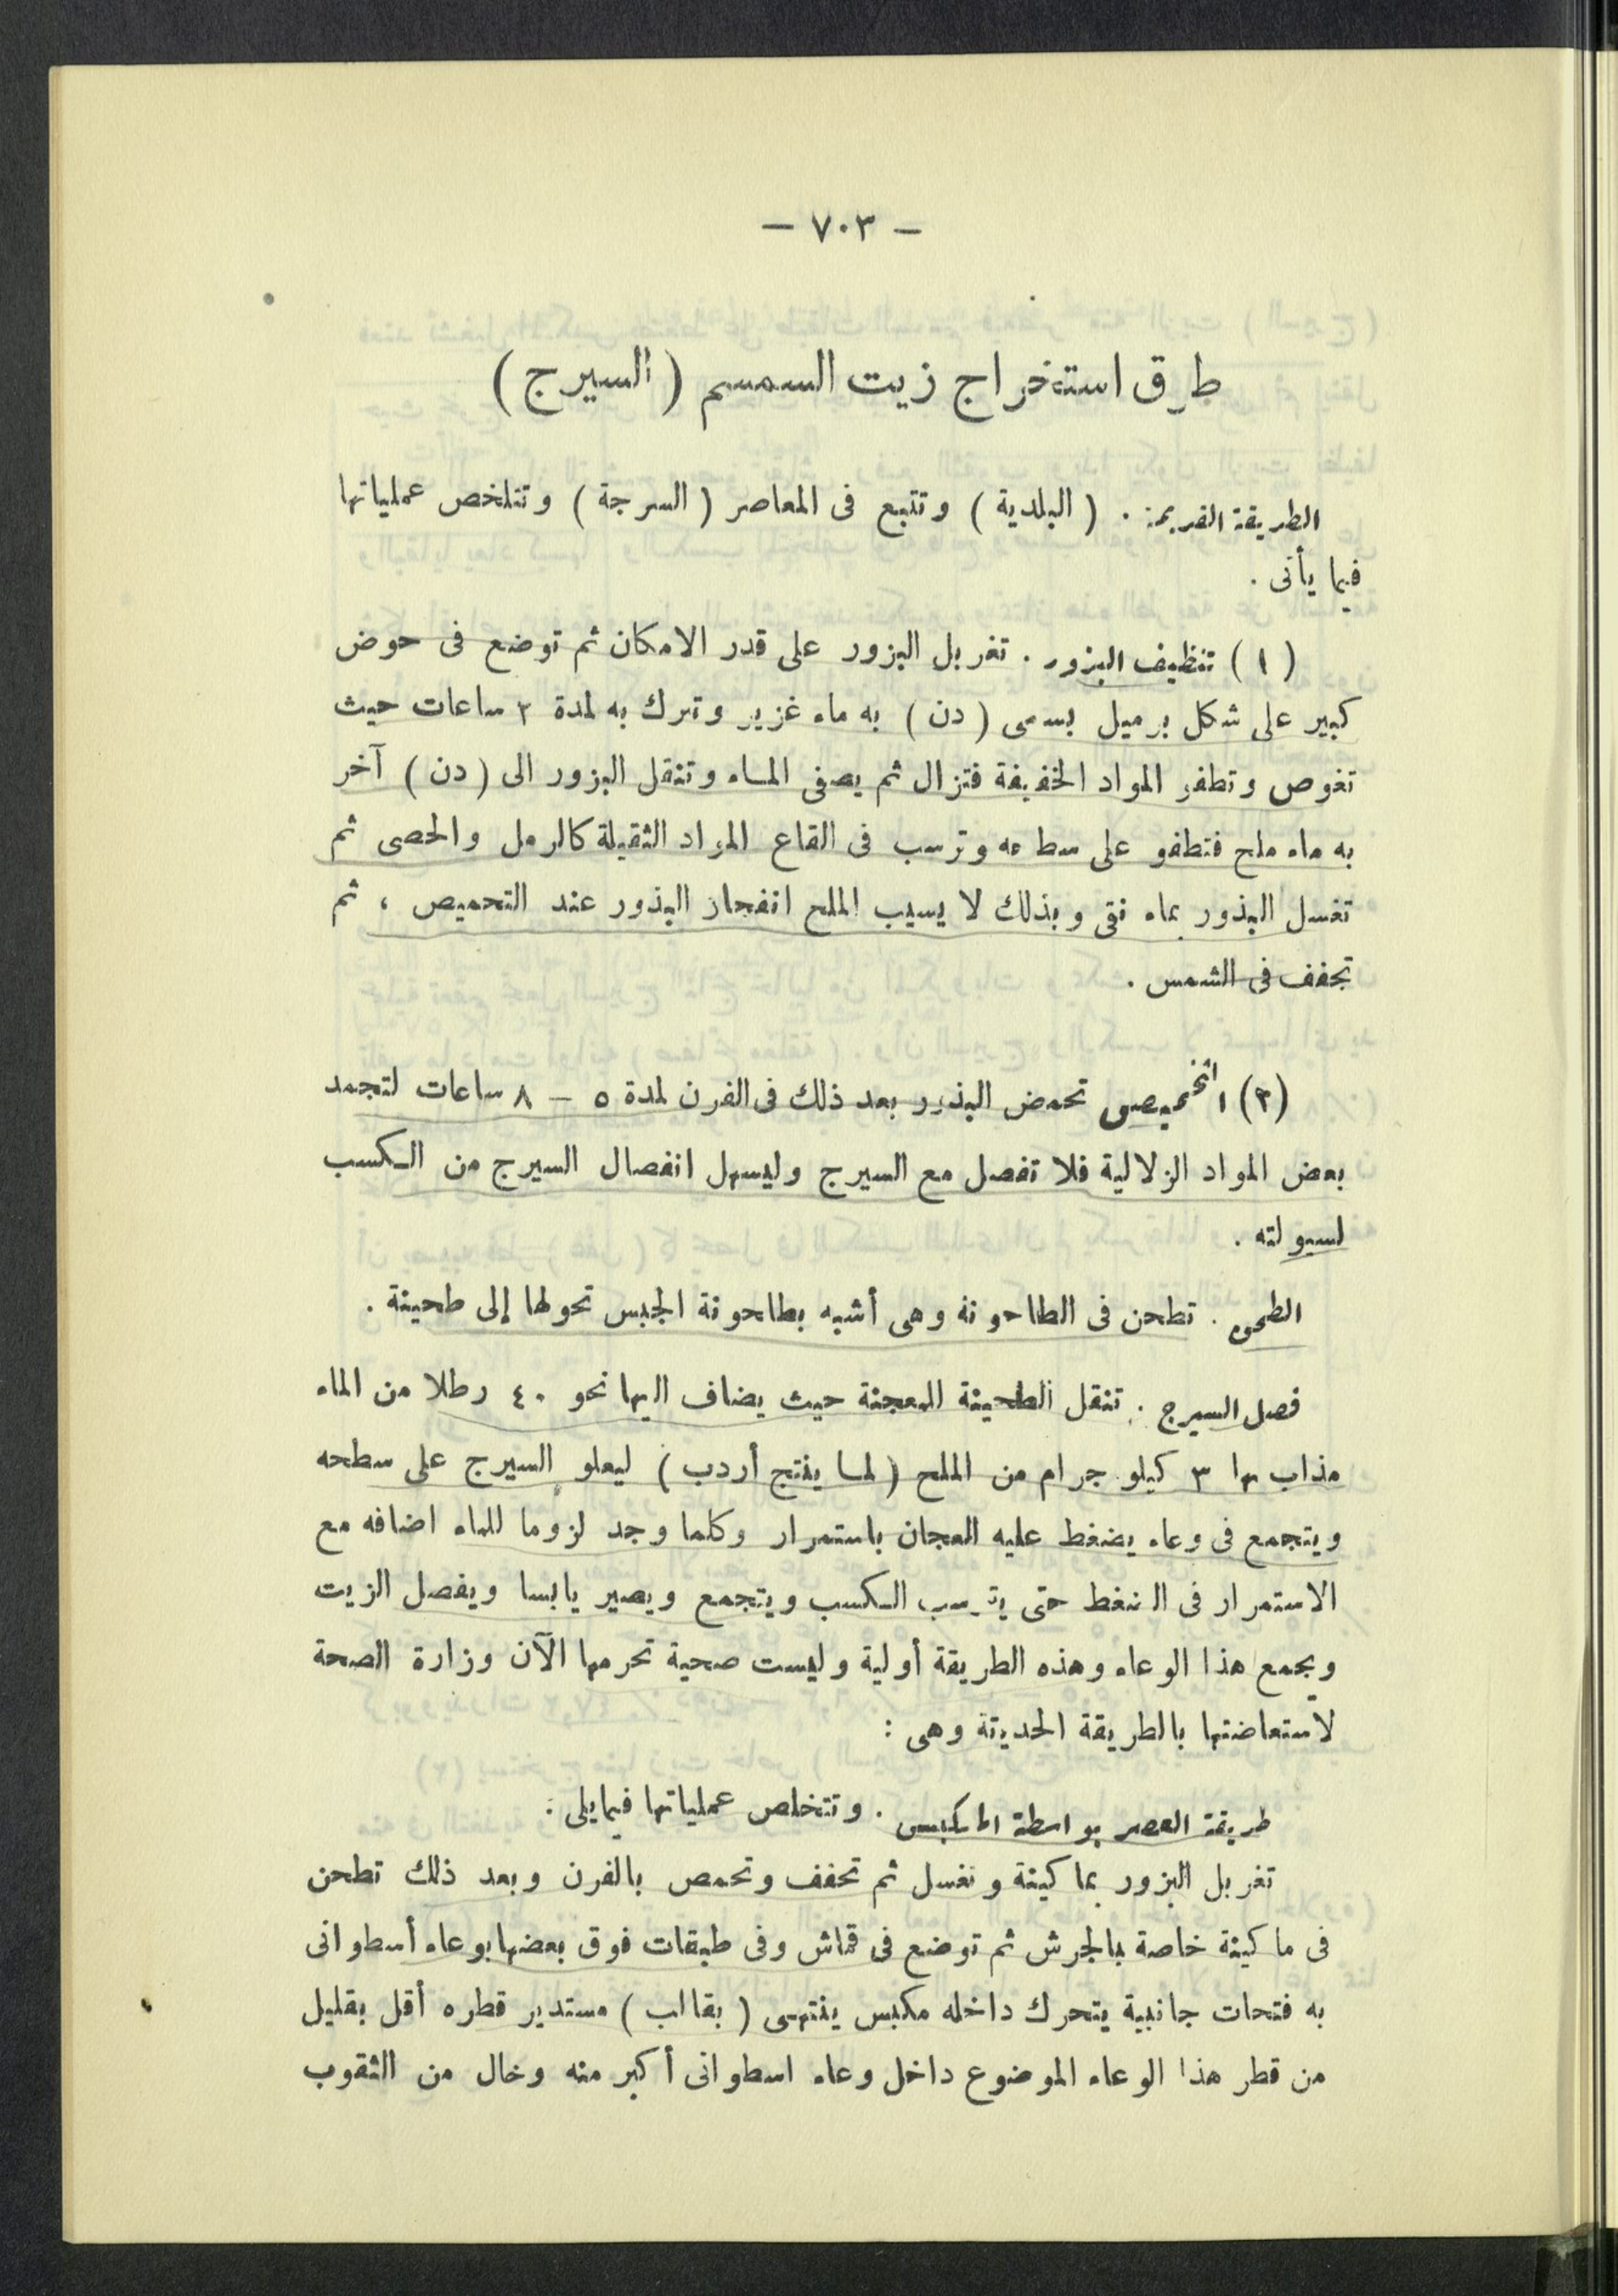 – ٧٠٣ –
طرق استخراج زيت السمسم ( السيرج )
الطريقة القديمة . ( البلدية ) وتتبع فى المعاصر ( السرجة ) وتتلخص عملياتها
فيما يأتى .
( ١ ) تنظيف البزور . تغربل البزور على قدر الامكان ثم توضع فى حوض
كبير على شكل برميل يسمى ( دن ) به ماء غزير وتترك به لمدة ٢ ساعات حيث
تغوص وتطفو المواد الخفيفة فتزال ثم يصفى الماء وتنقل البزور الى ( دن ) آخر
به ماء ملح فتطفو على سطحه وترسب فى القاع المواد الثقيلة كالرمل والحصى ثم
تغسل البذور بماء نقى وبذلك لا يسبب الملح انفجار البذور عند التحميص ، ثم
تجفف فى الشمس .
(٢) التحميص تحمض البذور بعد ذلك فى الفرن لمدة ٥ – ٨ ساعات لتجمد
بعض المواد الزلالية فلا تفصل مع السيرج وليسهل انفصال السيرج من الكسب
لسيولته .
الطحن . تطحن فى الطاحونة وهى أشبه بطاحونة الجبس تحولها إلى طحينة .
فصل السيرج . تنقل الطحينة للمعجنة حيث يضاف اليها نحو ٤٠ رطلا من الماء
مذاب بها ٣ كيلو جرام من الملح ( لما ينتج أردب ) ليعلو السيرج على سطحه
ويتجمع فى وعاء يضغط عليه العجان باستمرار وكلما وجد لزوما للماء اضافه مع
الاستمرار فى الضغط حتى يترسب الكسب ويتجمع ويصير يابسا ويفصل الزيت
ويجمع هذا الوعاء وهذه الطريقة أولية وليست صحية تحرمها الآن وزارة الصحة
لاستعاضتها بالطريقة الحديثة وهى :
طريقة العصر بواسطة المكبس . وتتخلص عملياتها فيمايلى :
تغربل البزور بماكينة وتغسل ثم تجفف وتحمص بالفرن وبعد ذلك تطحن
فى ماكينة خاصة بالجرش ثم توضع فى قماش وفى طبقات فوق بعضها بوعاء أسطوانى
به فتحات جانبية يتحرك داخله مكبس ينتهى ( بقالب ) مستدير قطره أقل بقليل
من قطر هذا الوعاء الموضوع داخل وعاء اسطوانى أكبر منه وخال من الثقوب